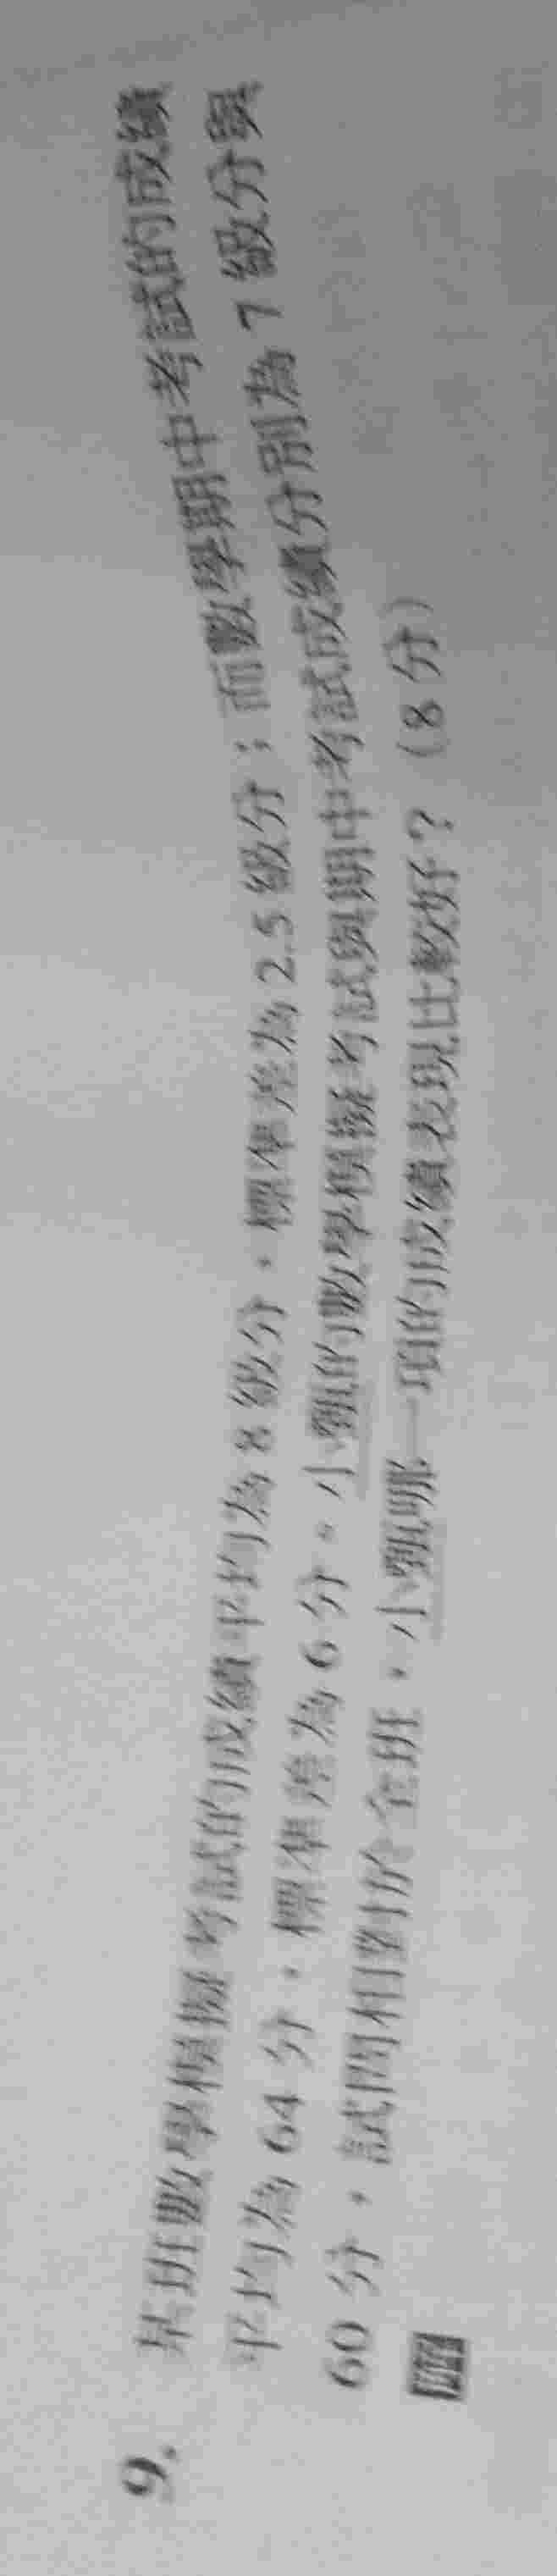 9. 某班數學模擬考試的成績平均為 8 級分,標準差為 2.5 級分;而數學期中考試的成績
平均為 64 分,標準差為 6 分。小甄的數學模擬考試與期中考試成績分別為 7 級分與
60 分,試問相對於全班,小甄哪一項的成績表現比較好?(8 分)